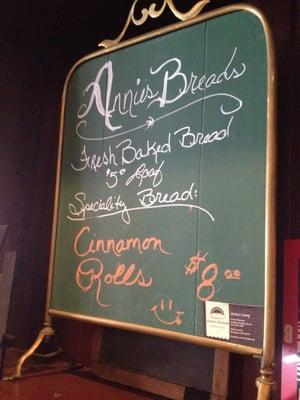 Annie's Breads
Fresh Baked Bread
$5.⁰ Loaf
Speciality Bread:
Cinnamon
Rolls $8.⁰⁰